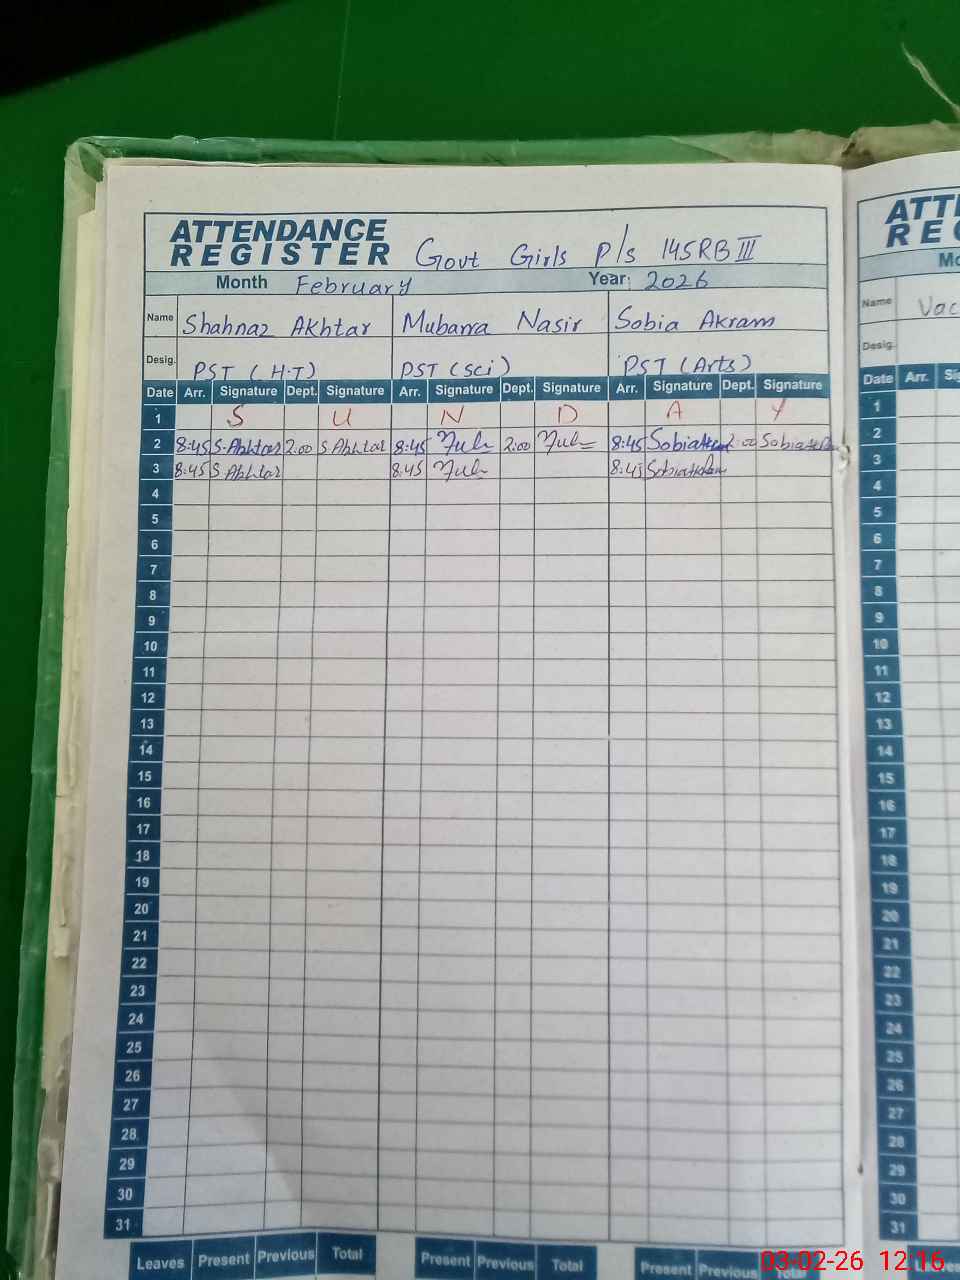 ATTENDANCE
REGISTER Govt Girls P/s 145RB III
Month February Year: 2026
Name Shahnaz Akhtar Mubarra Nasir Sobia Akram
Desig. PST (H.T) PST (Sci) PST (Arts)
Date Arr. Signature Dept. Signature Arr. Signature Dept. Signature Arr. Signature Dept. Signature
1 S U N D A Y
2 8:45 S.Akhtar 2:00 S Akhtar 8:45 2:00 8:45 Sobia Akram 2:00 Sobia Akram
3 8:45 S Akhtar 8:45 8:45 Sobia Akram
4
5
6
7
8
9
10
11
12
13
14
15
16
17
18
19
20
21
22
23
24
25
26
27
28
29
30
31
Leaves Present Previous Total Present Previous Total Present Previous Total
ATTE
REG
Mo
Name Vac
Desig.
Date Arr. Sig
1
2
3
4
5
6
7
8
9
10
11
12
13
14
15
16
17
18
19
20
21
22
23
24
25
26
27
28
29
30
31
03-02-26 12:16